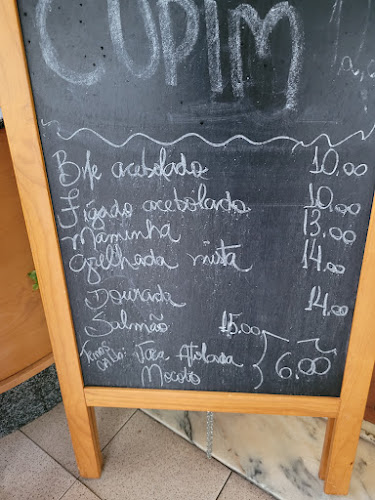 CUPIM
Bife acebolado 10,00
Fígado acebolado 10,00
Maminha 13,00
Grelhada mista 14,00
Dourada 14,00
Salmão 15,00
Temos Caldo: Vaca Atolada
Mocotó 6,00